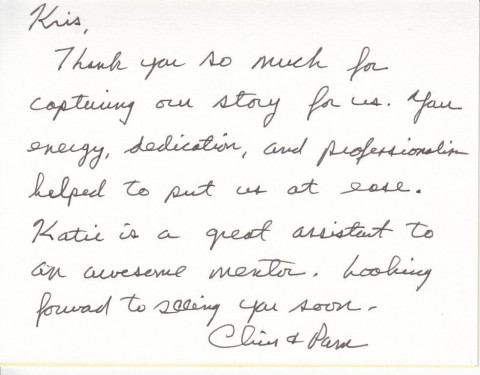 Kris,
Thank you so much for
capturing our story for us. Your
energy, dedication, and professionalism
helped to put us at ease.
Katie is a great assistant to
an awesome mentor. Looking
forward to seeing you soon.
Chris & Pam